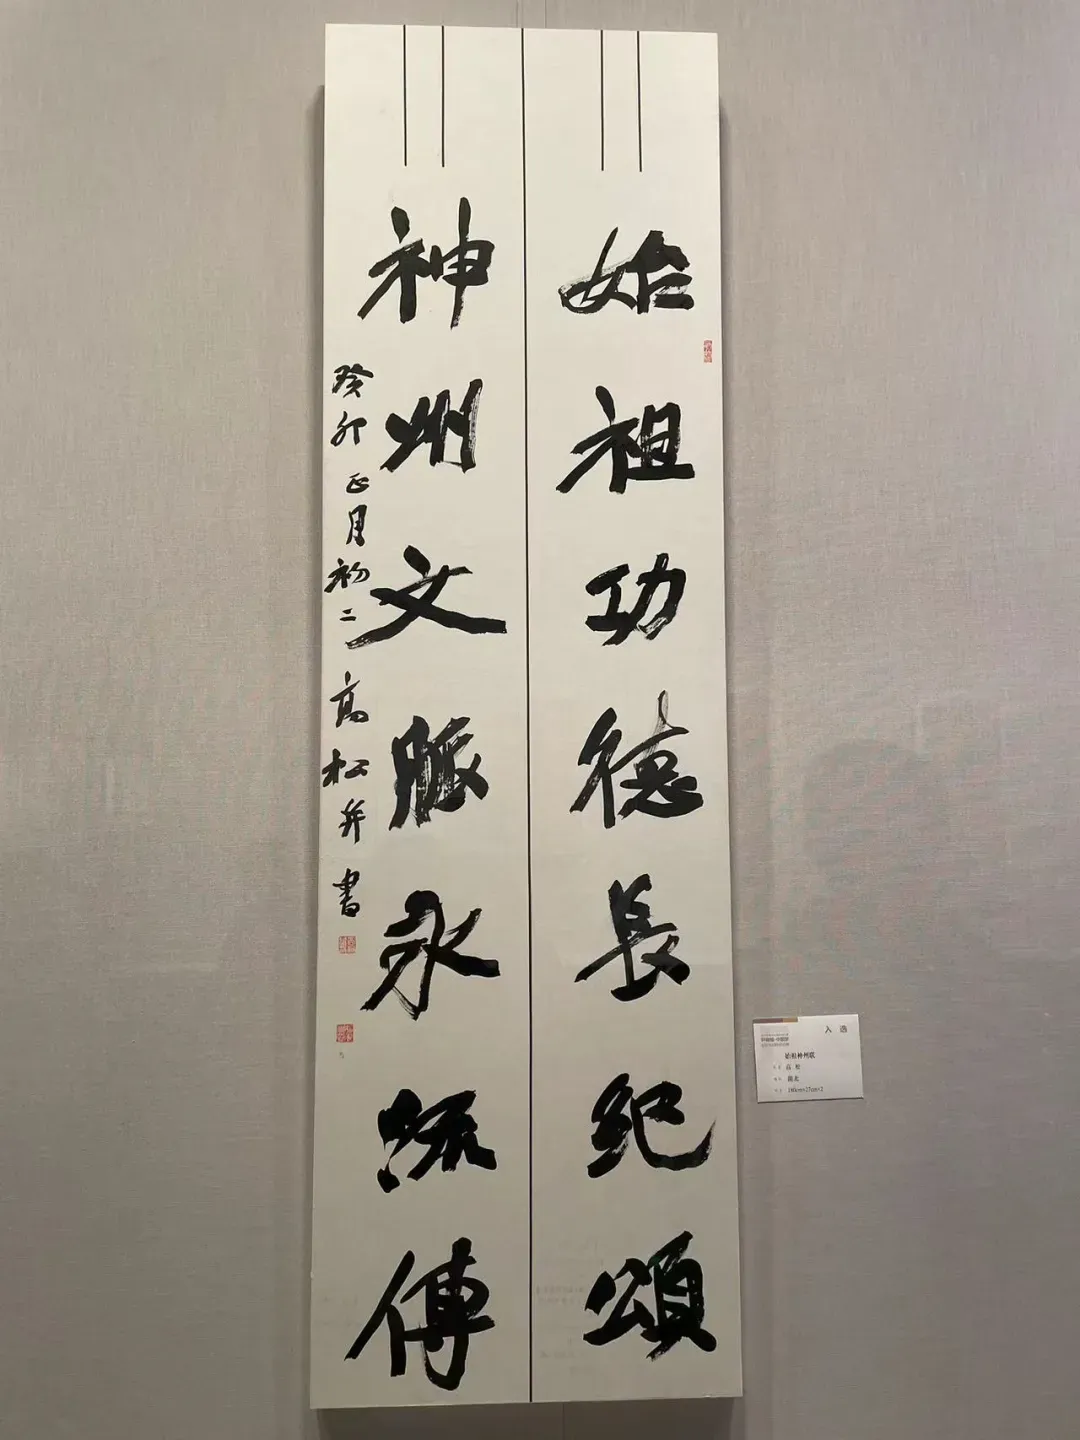 始祖功德長紀頌
神州文脈永流傳
癸卯正月初二 高松并書
入选
始祖神州联
高松
湖北
180cm×27cm×2